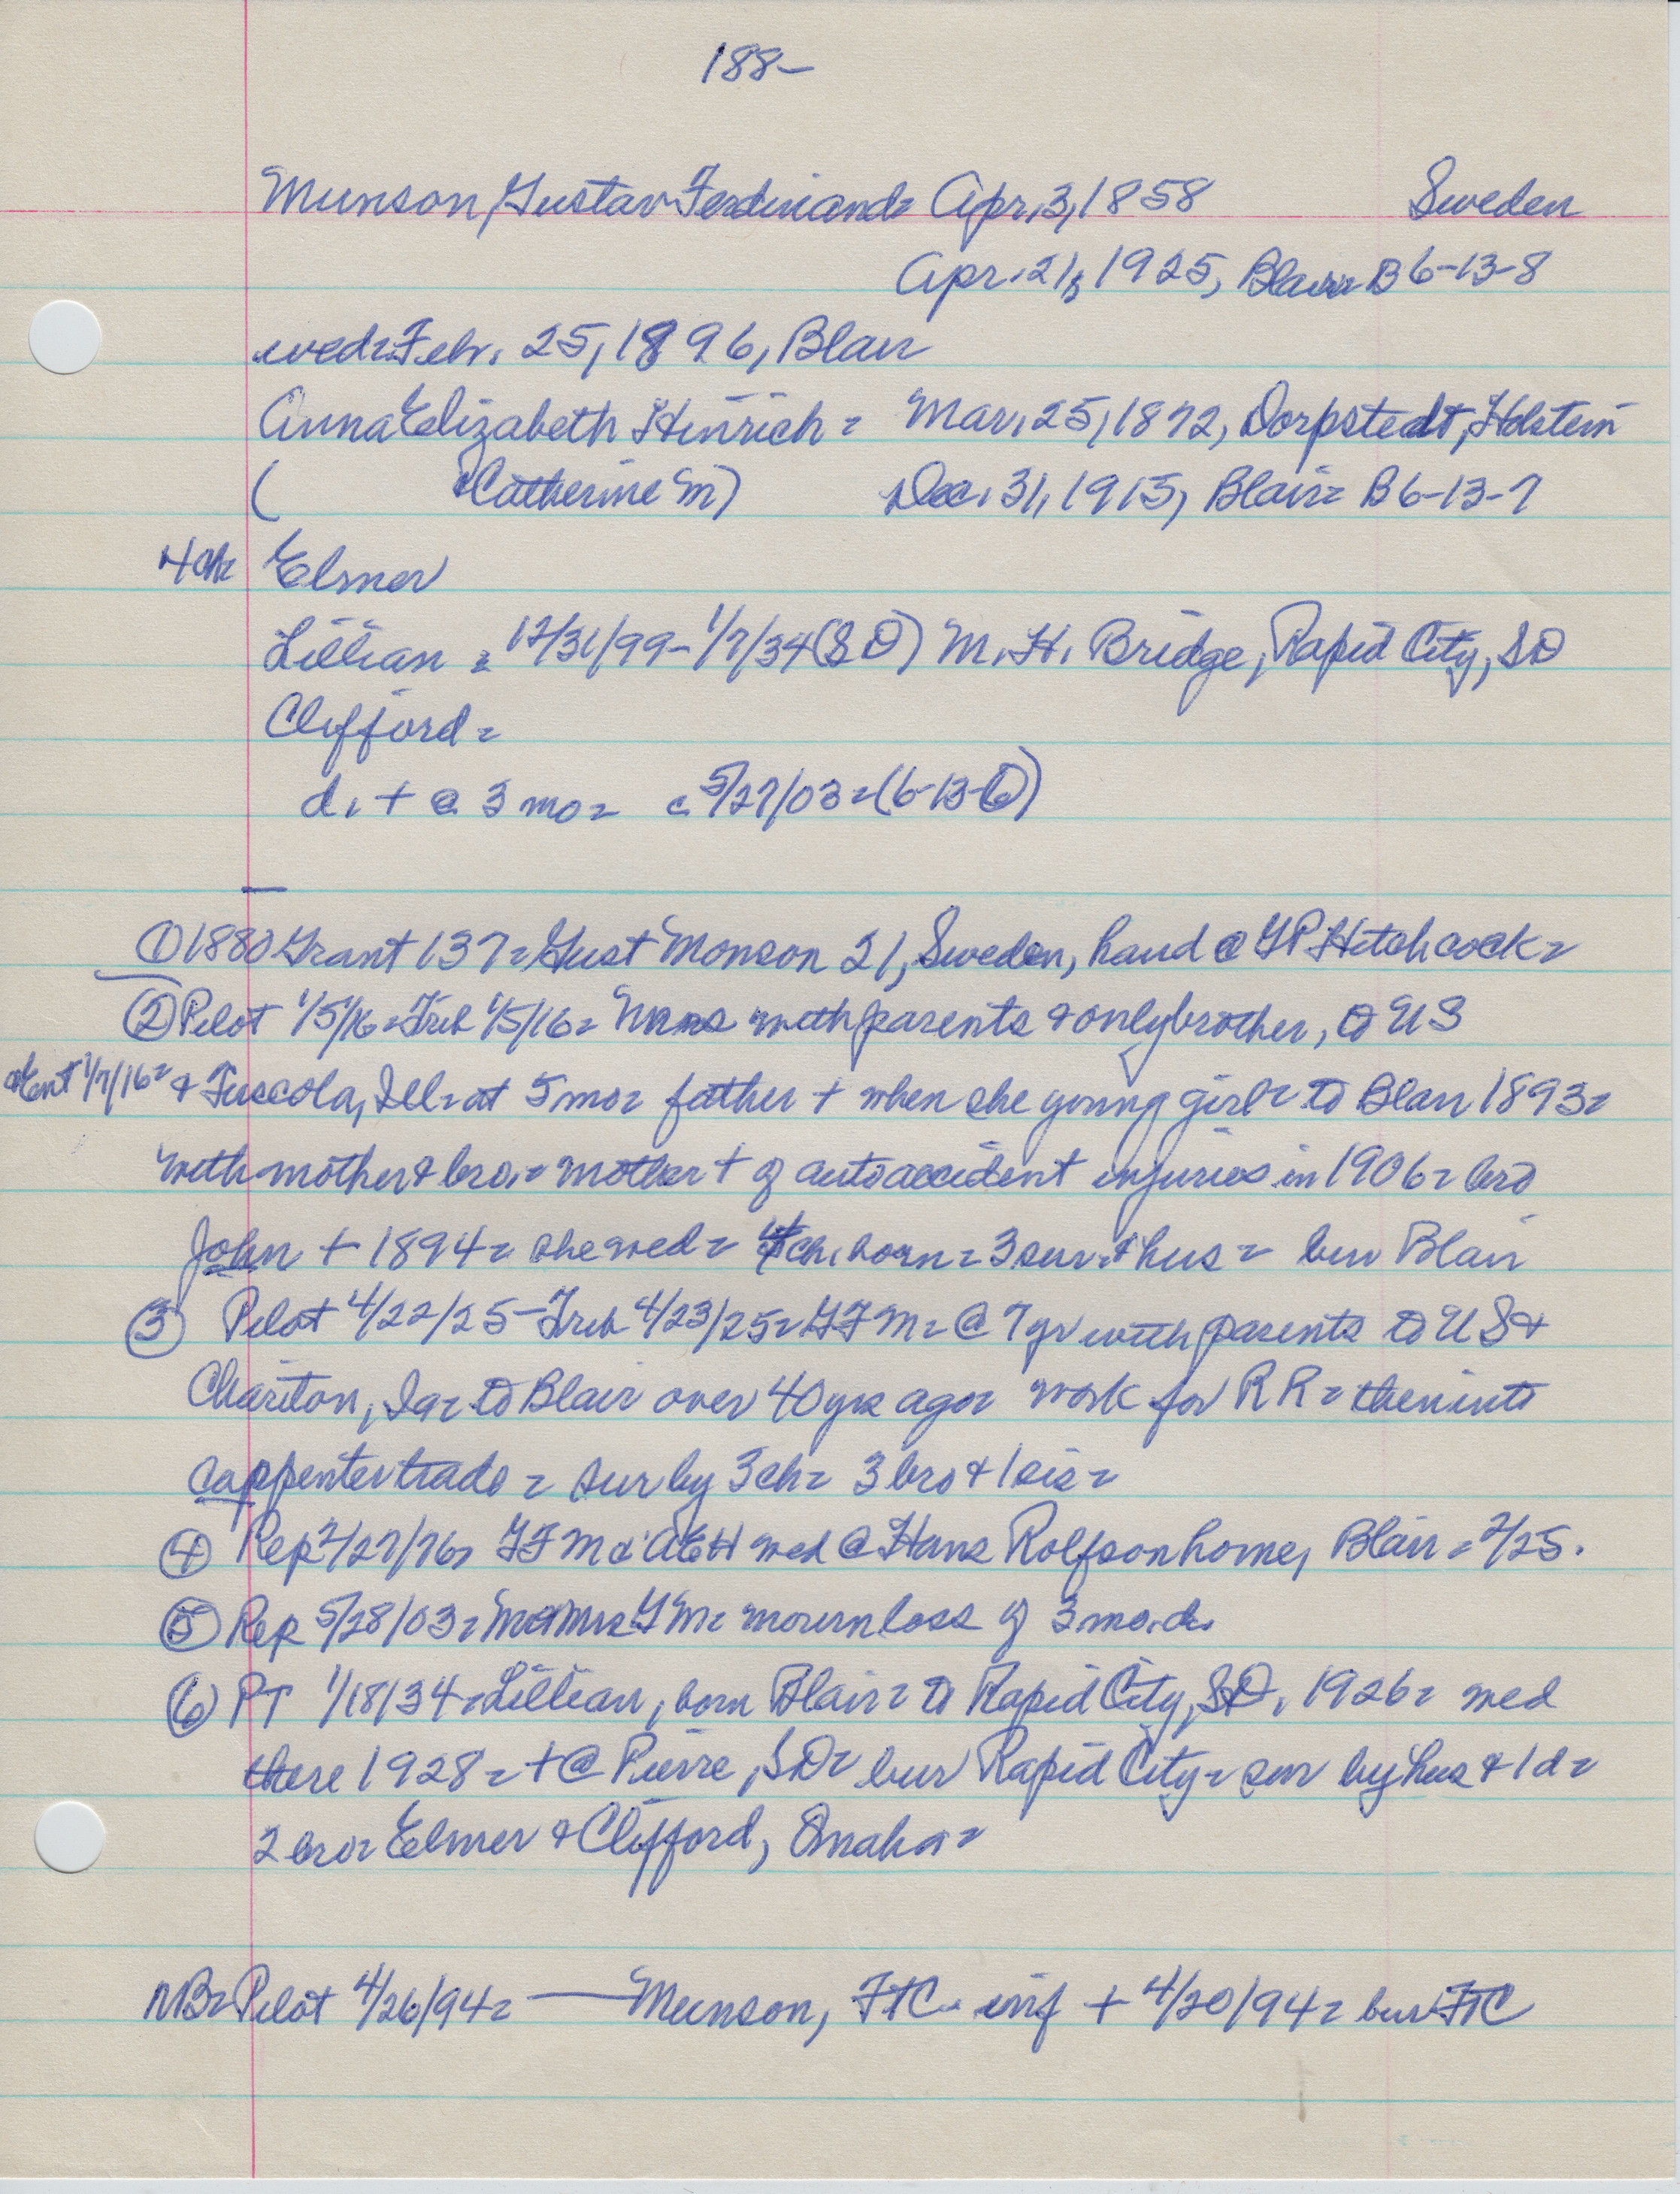 188-
Munson, Gustav Ferdinand= Apr. 3, 1858 Sweden
Apr. 21, 1925, Blair= B 6-13-8
wed= Febr. 25, 1896, Blair
Anna Elizabeth Hinrich= Mar. 25, 1872, Dorpstedt, Holstein
( Catherine M) Dec. 31, 1915, Blair= B 6-13-7
4ch= Elmer
Lillian = 12/31/99-1/7/34(SD) M. H. Bridge, Rapid City, SD
Clifford=
d. + @ 3 mo= c 5/27/03=(6-13-6)
① 1880 Grant 137= Gust Monson 21, Sweden, hand @ GP Hitchcock=
② Pilot 1/5/16= Trib 1/5/16= with parents & only brother, to US
Ent 1/7/16= & Tuscola, Ill= at 5 mo= father + when she young girl= to Blair 1893=
with mother & bro.= mother + of auto accident injuries in 1906= bro
John + 1894= she wed= 4 ch. born= 3 sur.& hus= bur Blair
③ Pilot 4/22/25-Trib 4/23/25= GFM= @ 7 yr with parents to US &
Chariton, Ia= to Blair over 40 yrs ago= work for RR= then into
carpenter trade= sur by 3 ch= 3 bro & 1 sis=
④ Rep 2/27/96= GFM & AEH wed @ Hans Rolfson home, Blair= 2/25.
⑤ Rep 5/28/03= M&Mrs GM= mourn loss of 3 mo. d.
⑥ PT 1/18/34= Lillian, born Blair= to Rapid City, SD, 1926= wed
there 1928= + @ Pierre, SD= bur Rapid City= sur by hus & 1 d=
2 bro= Elmer & Clifford, Omaha=
NB= Pilot 4/26/94= —— Munson, FTC= inf + 4/20/94= bur FTC